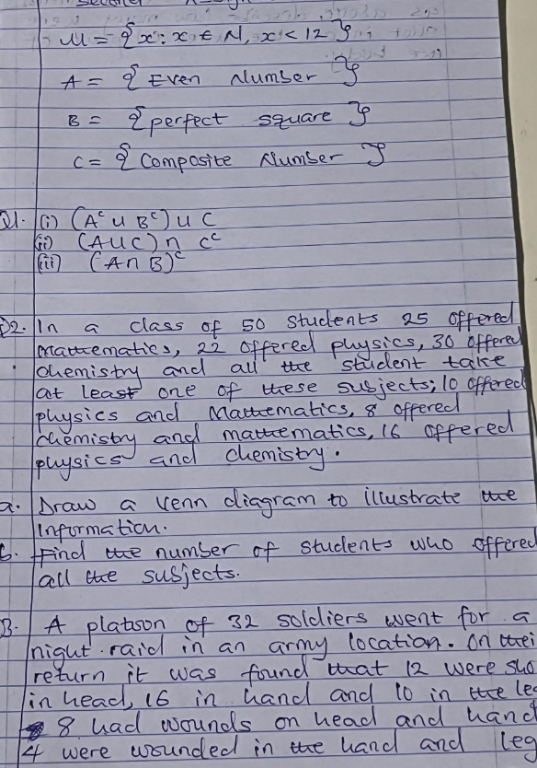 U = { x : x ∈ N, x < 12 }
A = { Even Number }
B = { perfect square }
C = { Composite Number }
Q1. (i) (Aᶜ ∪ Bᶜ) ∪ C
(ii) (A ∪ C) ∩ Cᶜ
(iii) (A ∩ B)ᶜ
Q2. In a class of 50 students 25 offered
Mathematics, 22 offered physics, 30 offered
chemistry and all the student take
at least one of these subjects; 10 offered
physics and Mathematics, 8 offered
chemistry and mathematics, 16 offered
physics and chemistry.
a. Draw a venn diagram to illustrate the
Information.
b. Find the number of students who offered
all the subjects.
3. A platoon of 32 soldiers went for a
night raid in an army location. On thei
return it was found that 12 were sho
in head, 16 in hand and 10 in the le
8 had wounds on head and hand
4 were wounded in the hand and leg